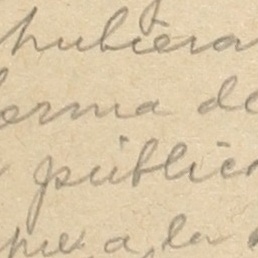 hubiera
forma de
públic
que a la